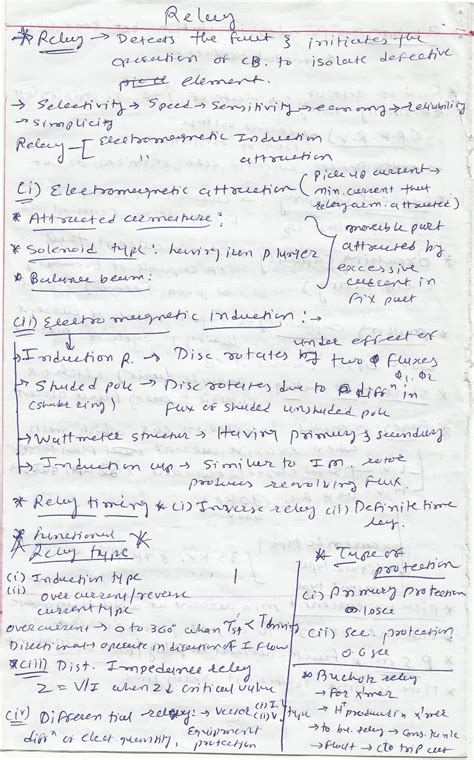 Relay
* Relay → Detects the fault & initiates the
operation of CB. to isolate defective
element.
→ Selectivity → Speed → Sensitivity → economy → reliability
→ simplicity
Relay → Electromagnetic Induction
" attraction
(i) Electromagnetic attraction (Pick up current →
min. current that
relay arm. attracted)
* Attracted armature:
* Solenoid type: having iron plunger
* Balance beam:
movable part
attracted by
excessive
current in
fix part
(ii) Electro magnetic induction: →
→ Induction R. → Disc rotates by two φ fluxes
under effect of
φ1, φ2
→ Shaded pole → Disc rotates due to diffⁿ in
(shade ring) flux of shaded unshaded pole
→ Wattmeter structur → Having primary & secondary
→ Induction cup → Similer to I.M.
produces revolving flux.
* Relay timing * (i) Inverse relay (ii) Definite time
* Functional *
Relay type
(i) Induction type
(ii) over current/reverse
current type
overcurrent → 0 to 360° when
Directional → operate in direction of I flow
* (iii) Dist. Impedance relay
Z = V/I when Z↓ critical value
(iv) Differential relay: → vector (i) I (ii) V type
diffⁿ of elect. quantity, Equipment
protection
* Type of
protection
(i) Primary Protection
(ii) Sec. protection
0.6 sec
* Bucholz relay
→ For x'mer
→ H⁺ product in x'mer